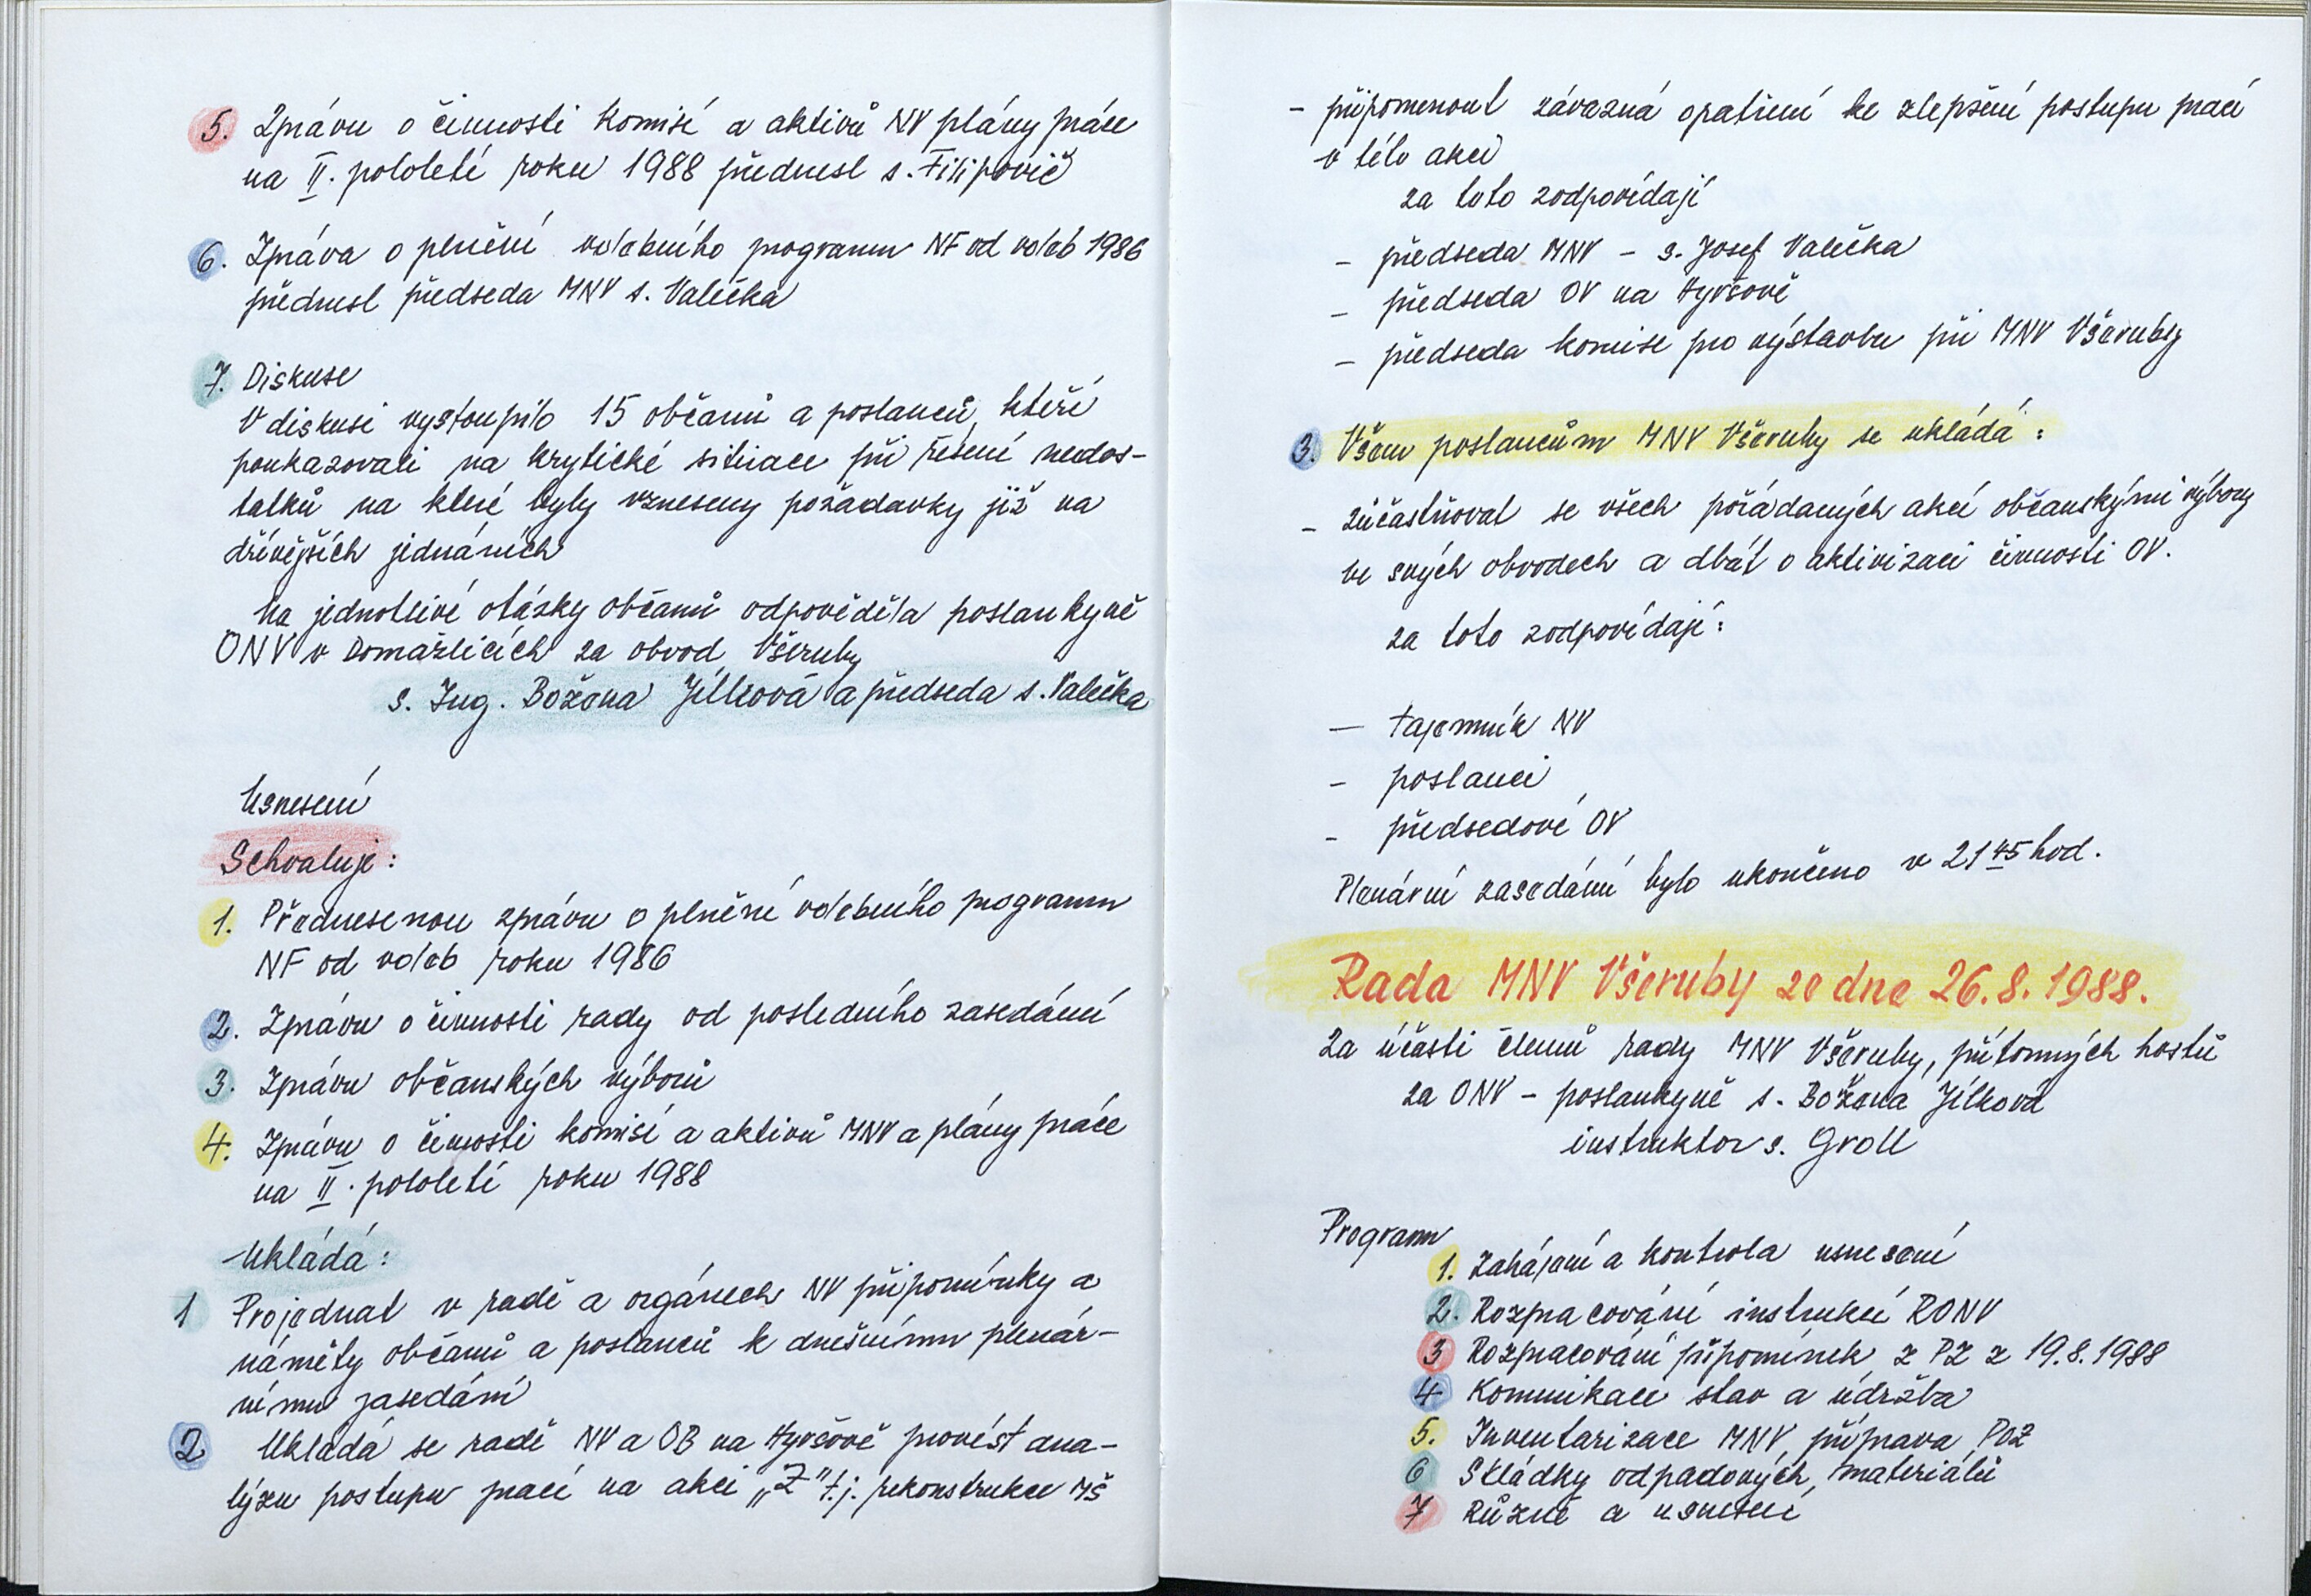 5. Zprávu o činnosti komisí a aktivů NV plány práce
na II. pololetí roku 1988 přednesl s. Filipovič
6. Zpráva o plnění volebního programu NF od voleb 1986
přednesl předseda MNV s. Valečka
7. Diskuse
V diskusi vystoupilo 15 občanů a poslanců, kteří
poukazovali na krytické situace při řešení nedos-
tatků na které byly vzneseny požadavky již na
dřívějších jednáních
Na jednotlivé otázky občanů odpověděla poslankyně
ONV v Domažlicích za obvod Všeruby
s. Ing. Božena Jílková a předseda s. Valečka
Usnesení
Schvaluje:
1. Přednesenou zprávu o plnění volebního programu
NF od voleb roku 1986
2. Zprávu o činnosti rady od posledního zasedání
3. Zprávu občanských výborů
4. Zprávu o činnosti komisí a aktivů MNV a plány práce
na II. pololetí roku 1988
Ukládá:
1 Projednat v radě a orgánech NV připomínky a
náměty občanů a poslanců k dnešnímu plenár-
nímu zasedání
2 Ukládá se radě NV a OB na Hyršově provést ana-
lýzu postupu prací na akci „Z" t.j. rekonstrukce MŠ
- připomenout závazná opatření ke zlepšení postupu prací
v této akci
za toto zodpovídají
- předseda MNV - s. Josef Valečka
- předseda OV na Hyršově
- předseda komise pro výstavbu při MNV Všeruby
3. Všem poslancům MNV Všeruby se ukládá:
- zúčastňovat se všech pořádaných akcí občanskými výbory
ve svých obvodech a dbát o aktivizaci činnosti OV.
za toto zodpovídají:
- tajemník NV
- poslanci
- předsedové OV
Plenární zasedání bylo ukončeno v 21 45 hod.
Rada MNV Všeruby ze dne 26.8.1988.
Za účasti členů rady MNV Všeruby, přítomných hostů
za ONV - poslankyně s. Božena Jílková
instruktor s. Groll
Program
1. Zahájení a kontrola usnesení
2. Rozpracování instrukcí RONV
3 Rozpracování připomínek z PZ z 19.8.1988
4 Komunikace stav a údržba
5. Inventarizace MNV, příprava POZ
6 Skládky odpadových materiálů
7 Různé a usnesení